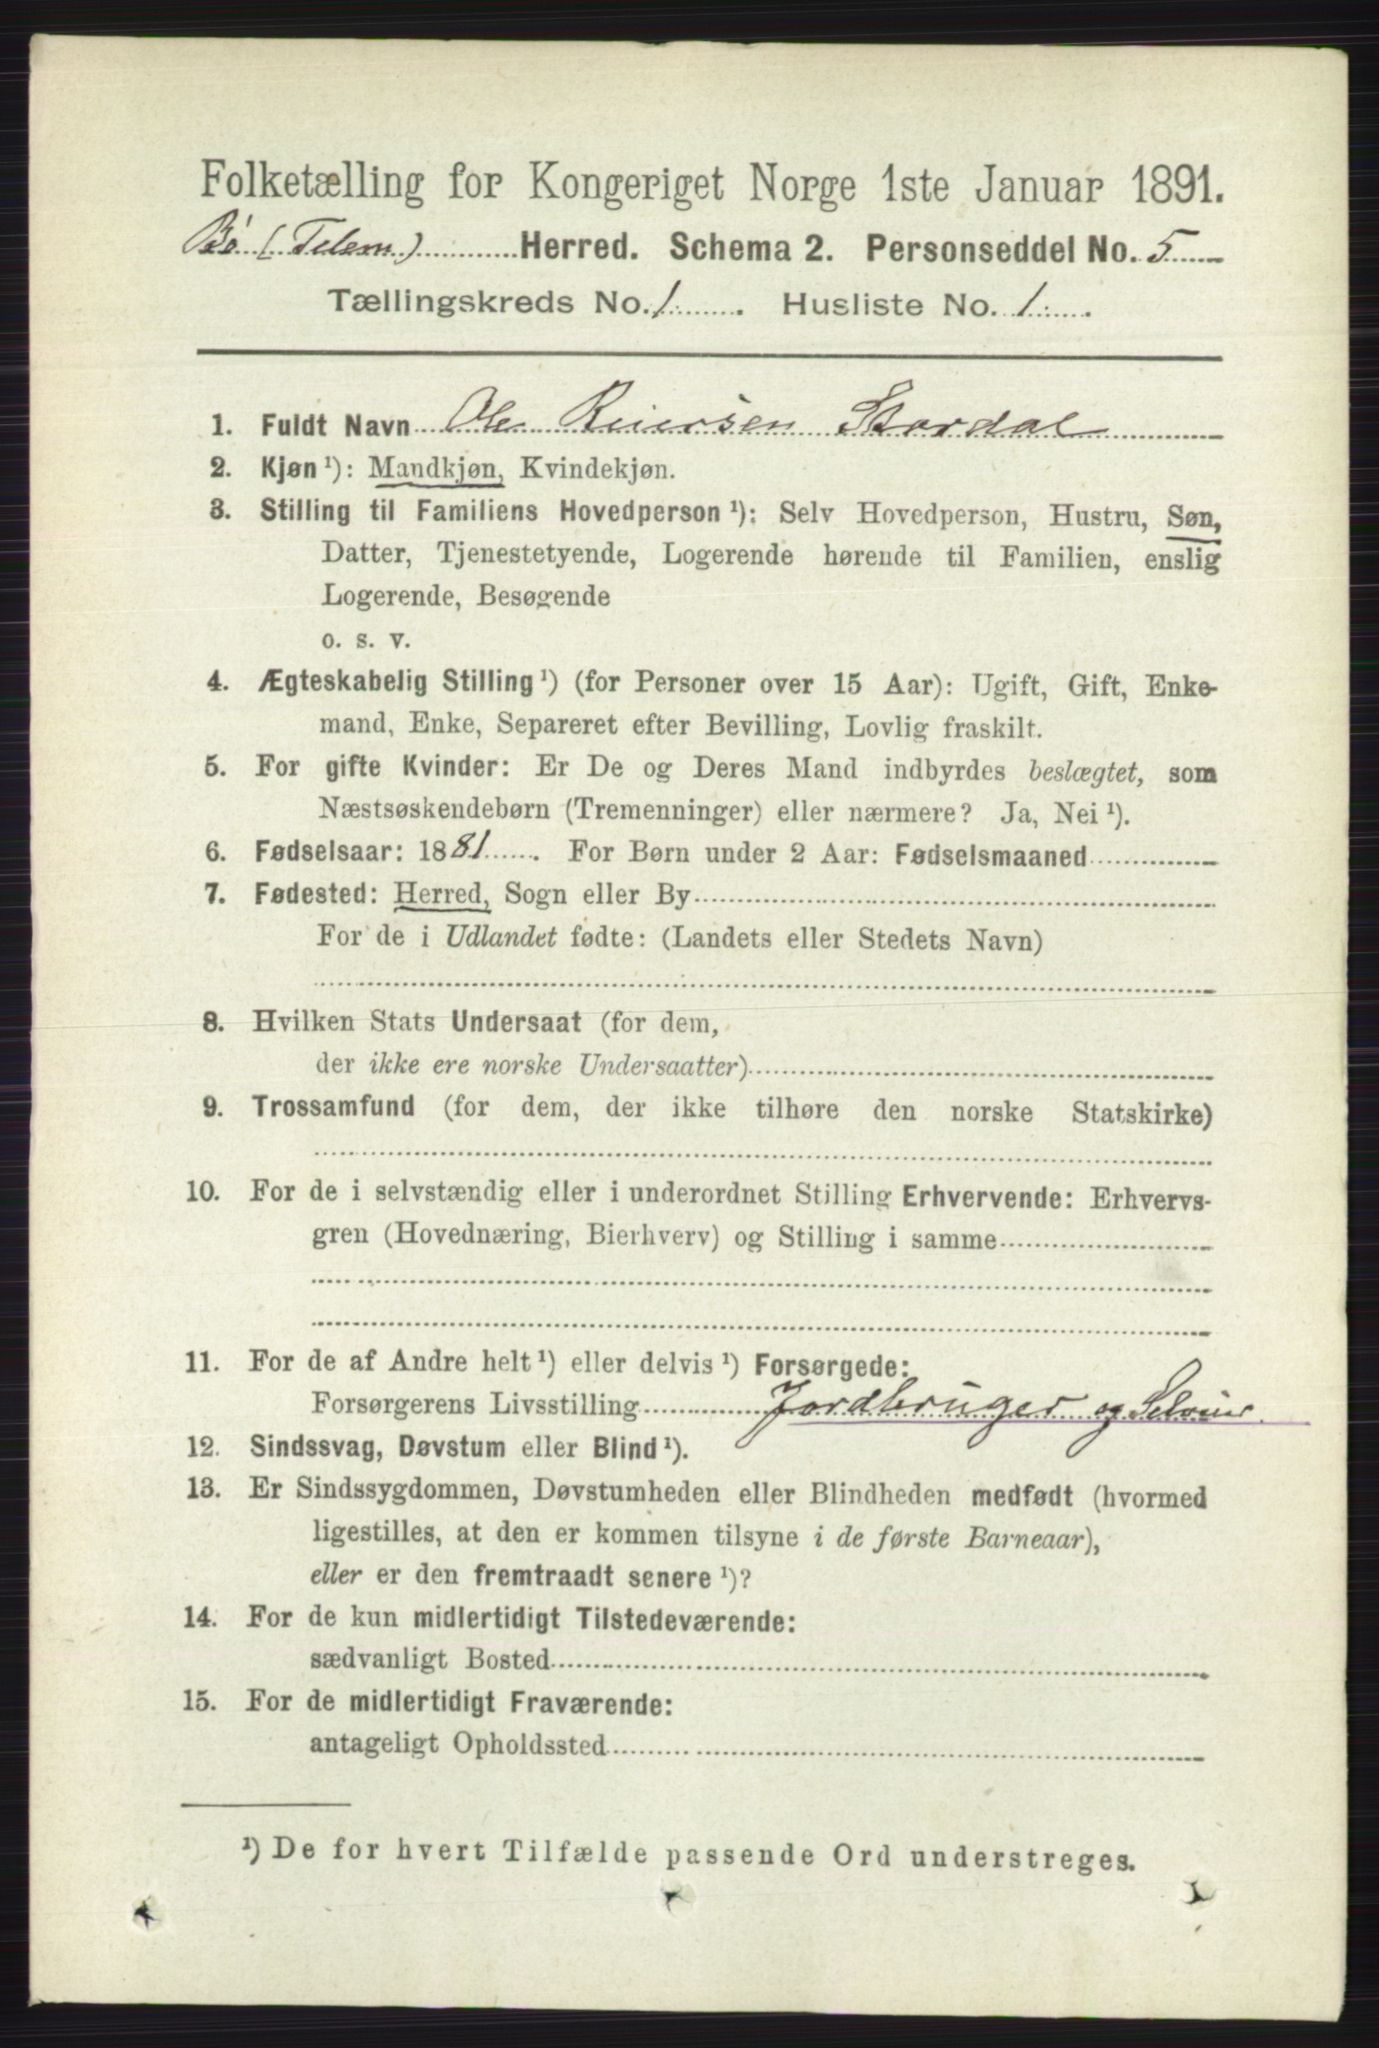 Folketælling for Kongeriget Norge 1ste Januar 1891.
Bø (Telem) Herred. Schema 2. Personseddel No. 5
Tællingskreds No. 1. Husliste No. 1.
1. Fuldt Navn Ole Reiersen Stordal
2. Kjøn¹): Mandkjøn, Kvindekjøn.
3. Stilling til Familiens Hovedperson¹): Selv Hovedperson, Hustru, Søn,
Datter, Tjenestetyende, Logerende hørende til Familien, enslig
Logerende, Besøgende
o. s. v.
4. Ægteskabelig Stilling¹) (for Personer over 15 Aar): Ugift, Gift, Enke-
mand, Enke, Separeret efter Bevilling, Lovlig fraskilt.
5. For gifte Kvinder: Er De og Deres Mand indbyrdes beslægtet, som
Næstsøskendebørn (Tremenninger) eller nærmere? Ja, Nei¹).
6. Fødselsaar: 1881. For Børn under 2 Aar: Fødselsmaaned
7. Fødested: Herred, Sogn eller By
For de i Udlandet fødte: (Landets eller Stedets Navn)
8. Hvilken Stats Undersaat (for dem,
der ikke ere norske Undersaatter)
9. Trossamfund (for dem, der ikke tilhøre den norske Statskirke)
10. For de i selvstændig eller i underordnet Stilling Erhvervende: Erhvervs-
gren (Hovednæring, Bierhverv) og Stilling i samme
11. For de af Andre helt¹) eller delvis¹) Forsørgede:
Forsørgerens Livsstilling Jordbruger og Selveier
12. Sindssvag, Døvstum eller Blind¹).
13. Er Sindssygdommen, Døvstumheden eller Blindheden medfødt (hvormed
ligestilles, at den er kommen tilsyne i de første Barneaar),
eller er den fremtraadt senere¹)?
14. For de kun midlertidigt Tilstedeværende:
sædvanligt Bosted
15. For de midlertidigt Fraværende:
antageligt Opholdssted
¹) De for hvert Tilfælde passende Ord understreges.